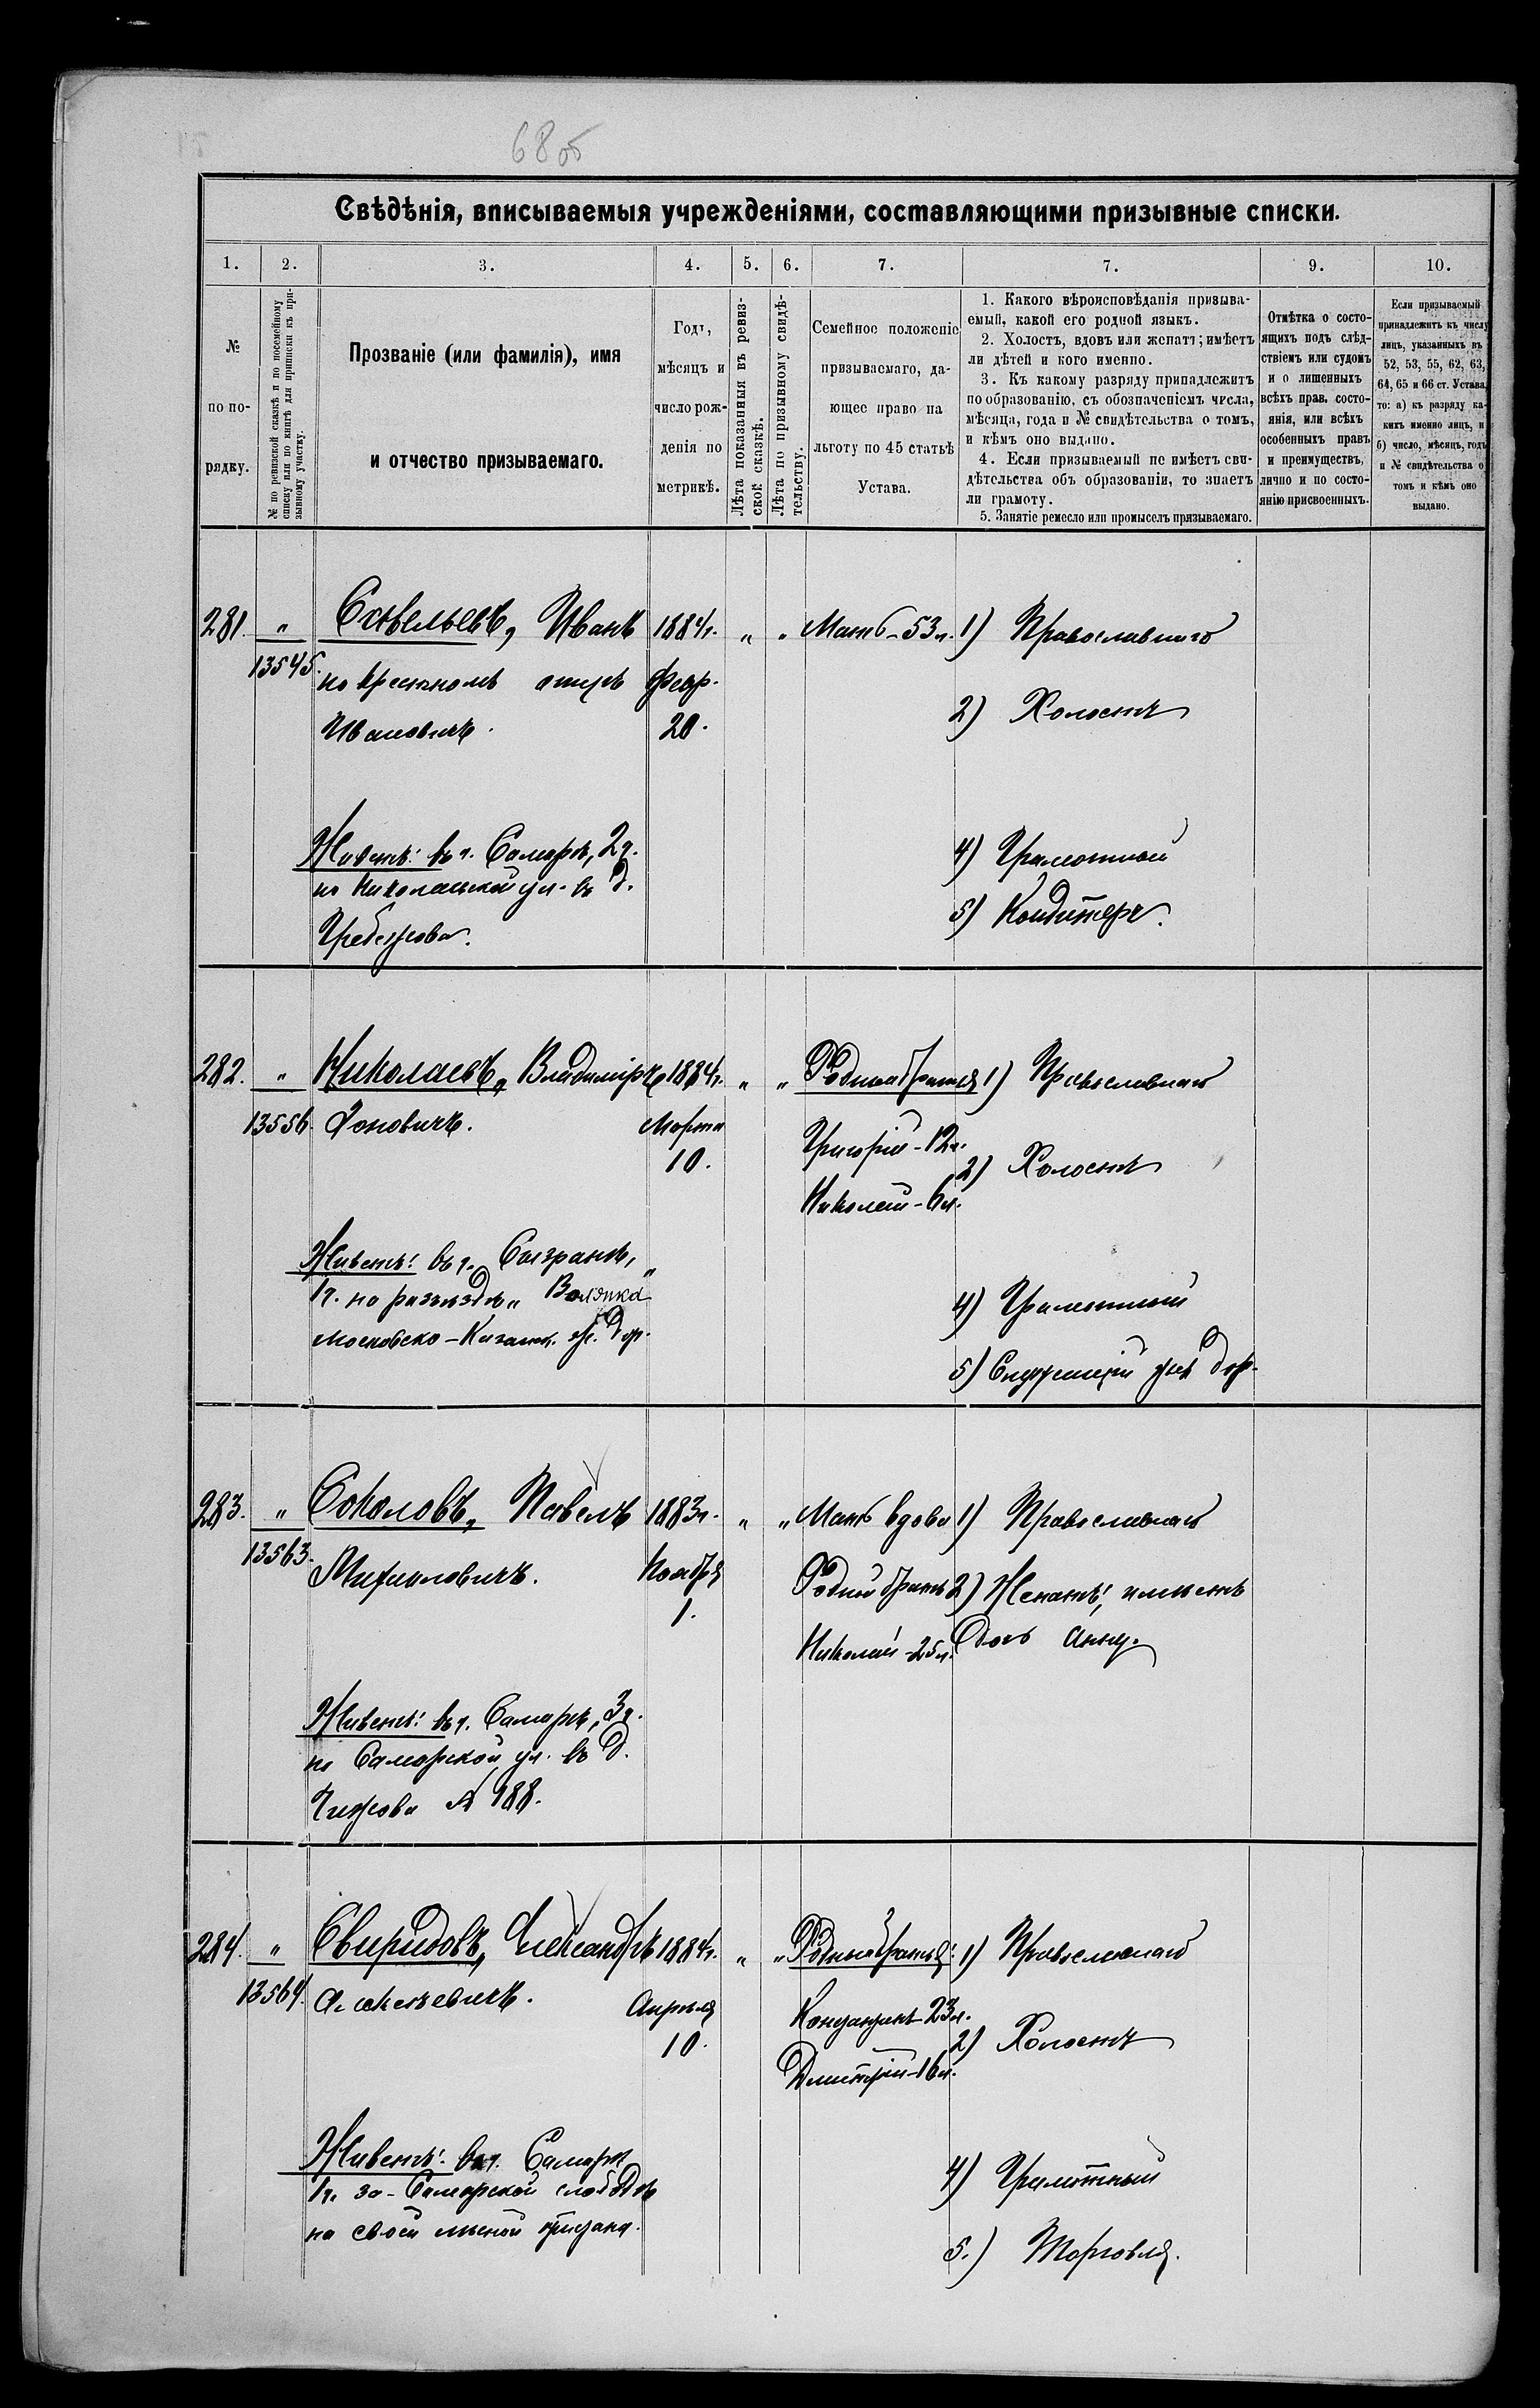 68 об
Свѣдѣнія, вписываемыя учрежденіями, составляющими призывные списки.
1. 2. 3. 4. 5. 6. 7. 7. 9. 10.
№ по порядку.
№ по ревизской сказкѣ и по посемейному списку или по книгѣ для приписки къ призывному участку.
Прозваніе (или фамилія), имя
и отчество призываемаго.
Годъ,
мѣсяцъ и
число рож-
денія по
метрикѣ.
Лѣта показанныя въ ревиз-
ской сказкѣ.
Лѣта по призывному свидѣ-
тельству.
Семейное положеніе
призываемаго, да-
ющее право на
льготу по 45 статьѣ
Устава.
1. Какого вѣроисповѣданія призыва-
емый, какой его родной языкъ.
2. Холостъ, вдовъ или женатъ; имѣетъ
ли дѣтей и кого именно.
3. Къ какому разряду принадлежитъ
по образованію, съ обозначеніемъ числа,
мѣсяца, года и № свидѣтельства о томъ,
и кѣмъ оно выдано.
4. Если призываемый не имѣетъ сви-
дѣтельства объ образованіи, то знаетъ
ли грамоту.
5. Занятіе ремесло или промыселъ призываемаго.
Отмѣтка о состо-
ящихъ подъ слѣд-
ствіемъ или судомъ
и о лишенныхъ
всѣхъ прав. состо-
янія, или всѣхъ
особенныхъ правъ
и преимуществъ,
лично и по состо-
янію присвоенныхъ.
Если призываемый
принадлежитъ къ числу
лицъ, указанныхъ въ
52, 53, 55, 62, 63,
64, 65 и 66 ст. Устава,
то: а) къ разряду ка-
кихъ именно лицъ, и
б) число, мѣсяцъ, годъ
и № свидѣтельства о
томъ и кѣмъ оно
выдано.
281. " Савельевъ, Иванъ 1884г. " " Мать - 53л. 1) Православнаго
13545. по крестномъ отцѣ Февр.
Ивановичъ. 20. 2) Холостъ
Живетъ: въ г. Самарѣ, 2ч. 4) Грамотный
по Николаевской ул. въ д. 5) Кондитеръ.
282. " Николаевъ, Владиміръ 1884г. " " Родные братья 1) Православнаго
13556. Іоновичъ. Марта Григорій - 12л.
10. 2) Холостъ
Николай - 6л.
Живетъ: въ г. Сызрани,
1ч. на разъѣздѣ " 4) Грамотный
Московско - Казанск. ж. дор.
5) Служащій жел дор.
283. " Соколовъ, Павелъ 1883г. " " Мать вдова 1) Православнаго
13563. Михаиловичъ. Ноября Родной братъ 2) Женатъ, имѣетъ
1. Николай - 25л. дочь Анну.
Живетъ: въ г. Самарѣ, 3ч.
по Самарской ул. въ д.
Чижова № 188.
284. " Свиридовъ, Александръ 1884г. " " Родные братья: 1) Православнаго
13564. Алексѣевичъ. Апрѣля 23л.
10. 2) Холостъ
Дмитрій - 16л.
Живетъ: въ г. Самарѣ 4) Грамотный
1ч. за - Самарской слободѣ
на своей 5.) Торговля.